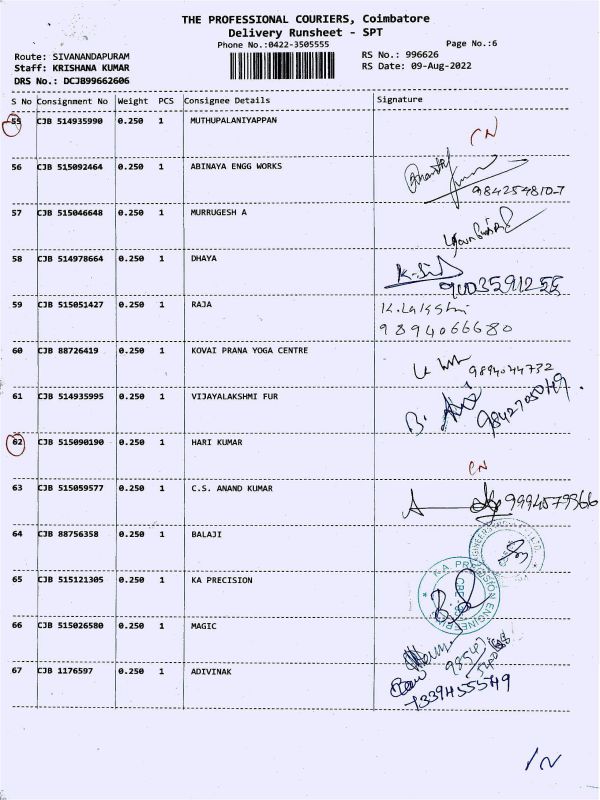 THE PROFESSIONAL COURIERS, Coimbatore
Delivery Runsheet - SPT
Phone No.:0422-3505555
Page No.:6
Route: SIVANANDAPURAM
RS No.: 996626
Staff: KRISHANA KUMAR
RS Date: 09-Aug-2022
DRS No.: DCJB99662606
S No Consignment No Weight PCS Consignee Details Signature
55 CJB 514935990 0.250 1 MUTHUPALANIYAPPAN
CN
56 CJB 515092464 0.250 1 ABINAYA ENGG WORKS
9842548107
57 CJB 515046648 0.250 1 MURRUGESH A
58 CJB 514978664 0.250 1 DHAYA
59 CJB 515051427 0.250 1 RAJA
9894066680
60 CJB 88726419 0.250 1 KOVAI PRANA YOGA CENTRE
9894044732
61 CJB 514935995 0.250 1 VIJAYALAKSHMI FUR
62 CJB 515090190 0.250 1 HARI KUMAR
CN
63 CJB 515059577 0.250 1 C.S. ANAND KUMAR
64 CJB 88756358 0.250 1 BALAJI
65 CJB 515121305 0.250 1 KA PRECISION
66 CJB 515026580 0.250 1 MAGIC
67 CJB 1176597 0.250 1 ADIVINAK